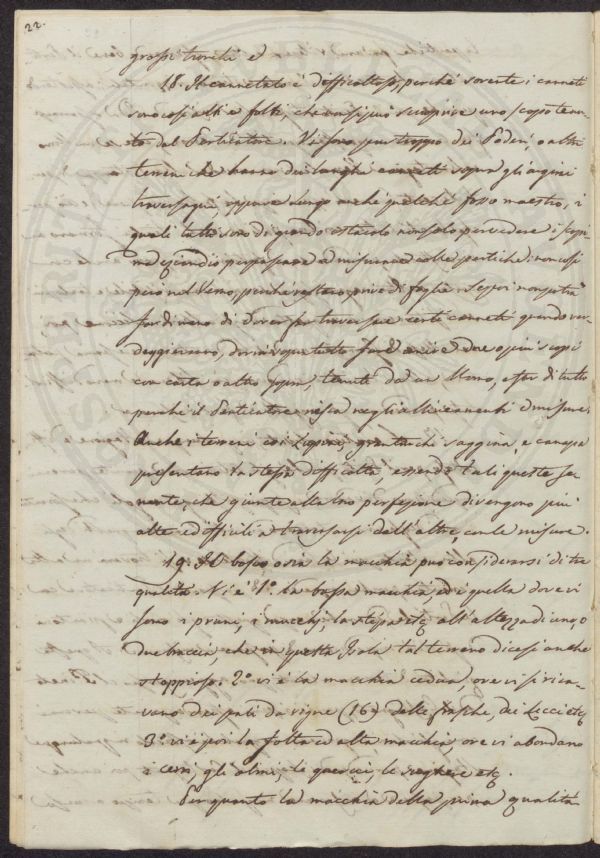 22.
grossi tronchi et
18. Il canneto è difficoltoso, perché sovente i canneti
sono così alti e folti, che non si può scuoprire uno scopo tenu-
to dal Perticatore. Vi sono pur troppo dei Poderi, o altri
terreni che hanno dei lunghi canneti sopra gli argini
traversagni, oppure lungo anche qualche fosso maestro, i
quali tutti sono di grande ostacolo non solo per vedere i scopi
ma eziandio per passare a misurare colle pertiche; non così
però nel Verno, perché restano privi di foglie
far di meno di dover traversare certi canneti quando ver-
deggieranno, dovrà sopra tutto fare alzare due o più scopi
con carta o altro sopra, tenuti da un Uomo, e far di tutto
perché il Perticatore riesca negli allineamenti di misure.
Anche i terreni con Lupini, granturchi saggina, e canapa
presentano la stessa difficoltà, essendo tali queste se-
mente, che giunte alla loro perfezione divengono più
alte e difficili a traversarsi dall' altre con le misure.
19. Il bosco o sia la macchia può considerarsi di tre
qualità. Vi è 1º. la bassa macchia, ed è quella dove vi
sono i pruni, i mucchj, la stipa etc. all' altezza di uno, o
due braccia, che in questa Isola tal terreno dicesi anche
stopposo. 2º vi è la macchia cedua, ove vi si rica-
vano dei pali da vigne (16) delle frasche, dei Lecci etc.
3º. vi è poi la folta ed alta macchia, ove vi abbondano
i cerri, gli olmi, le querci, le sughere etc.
Per quanto la macchia della prima qualità